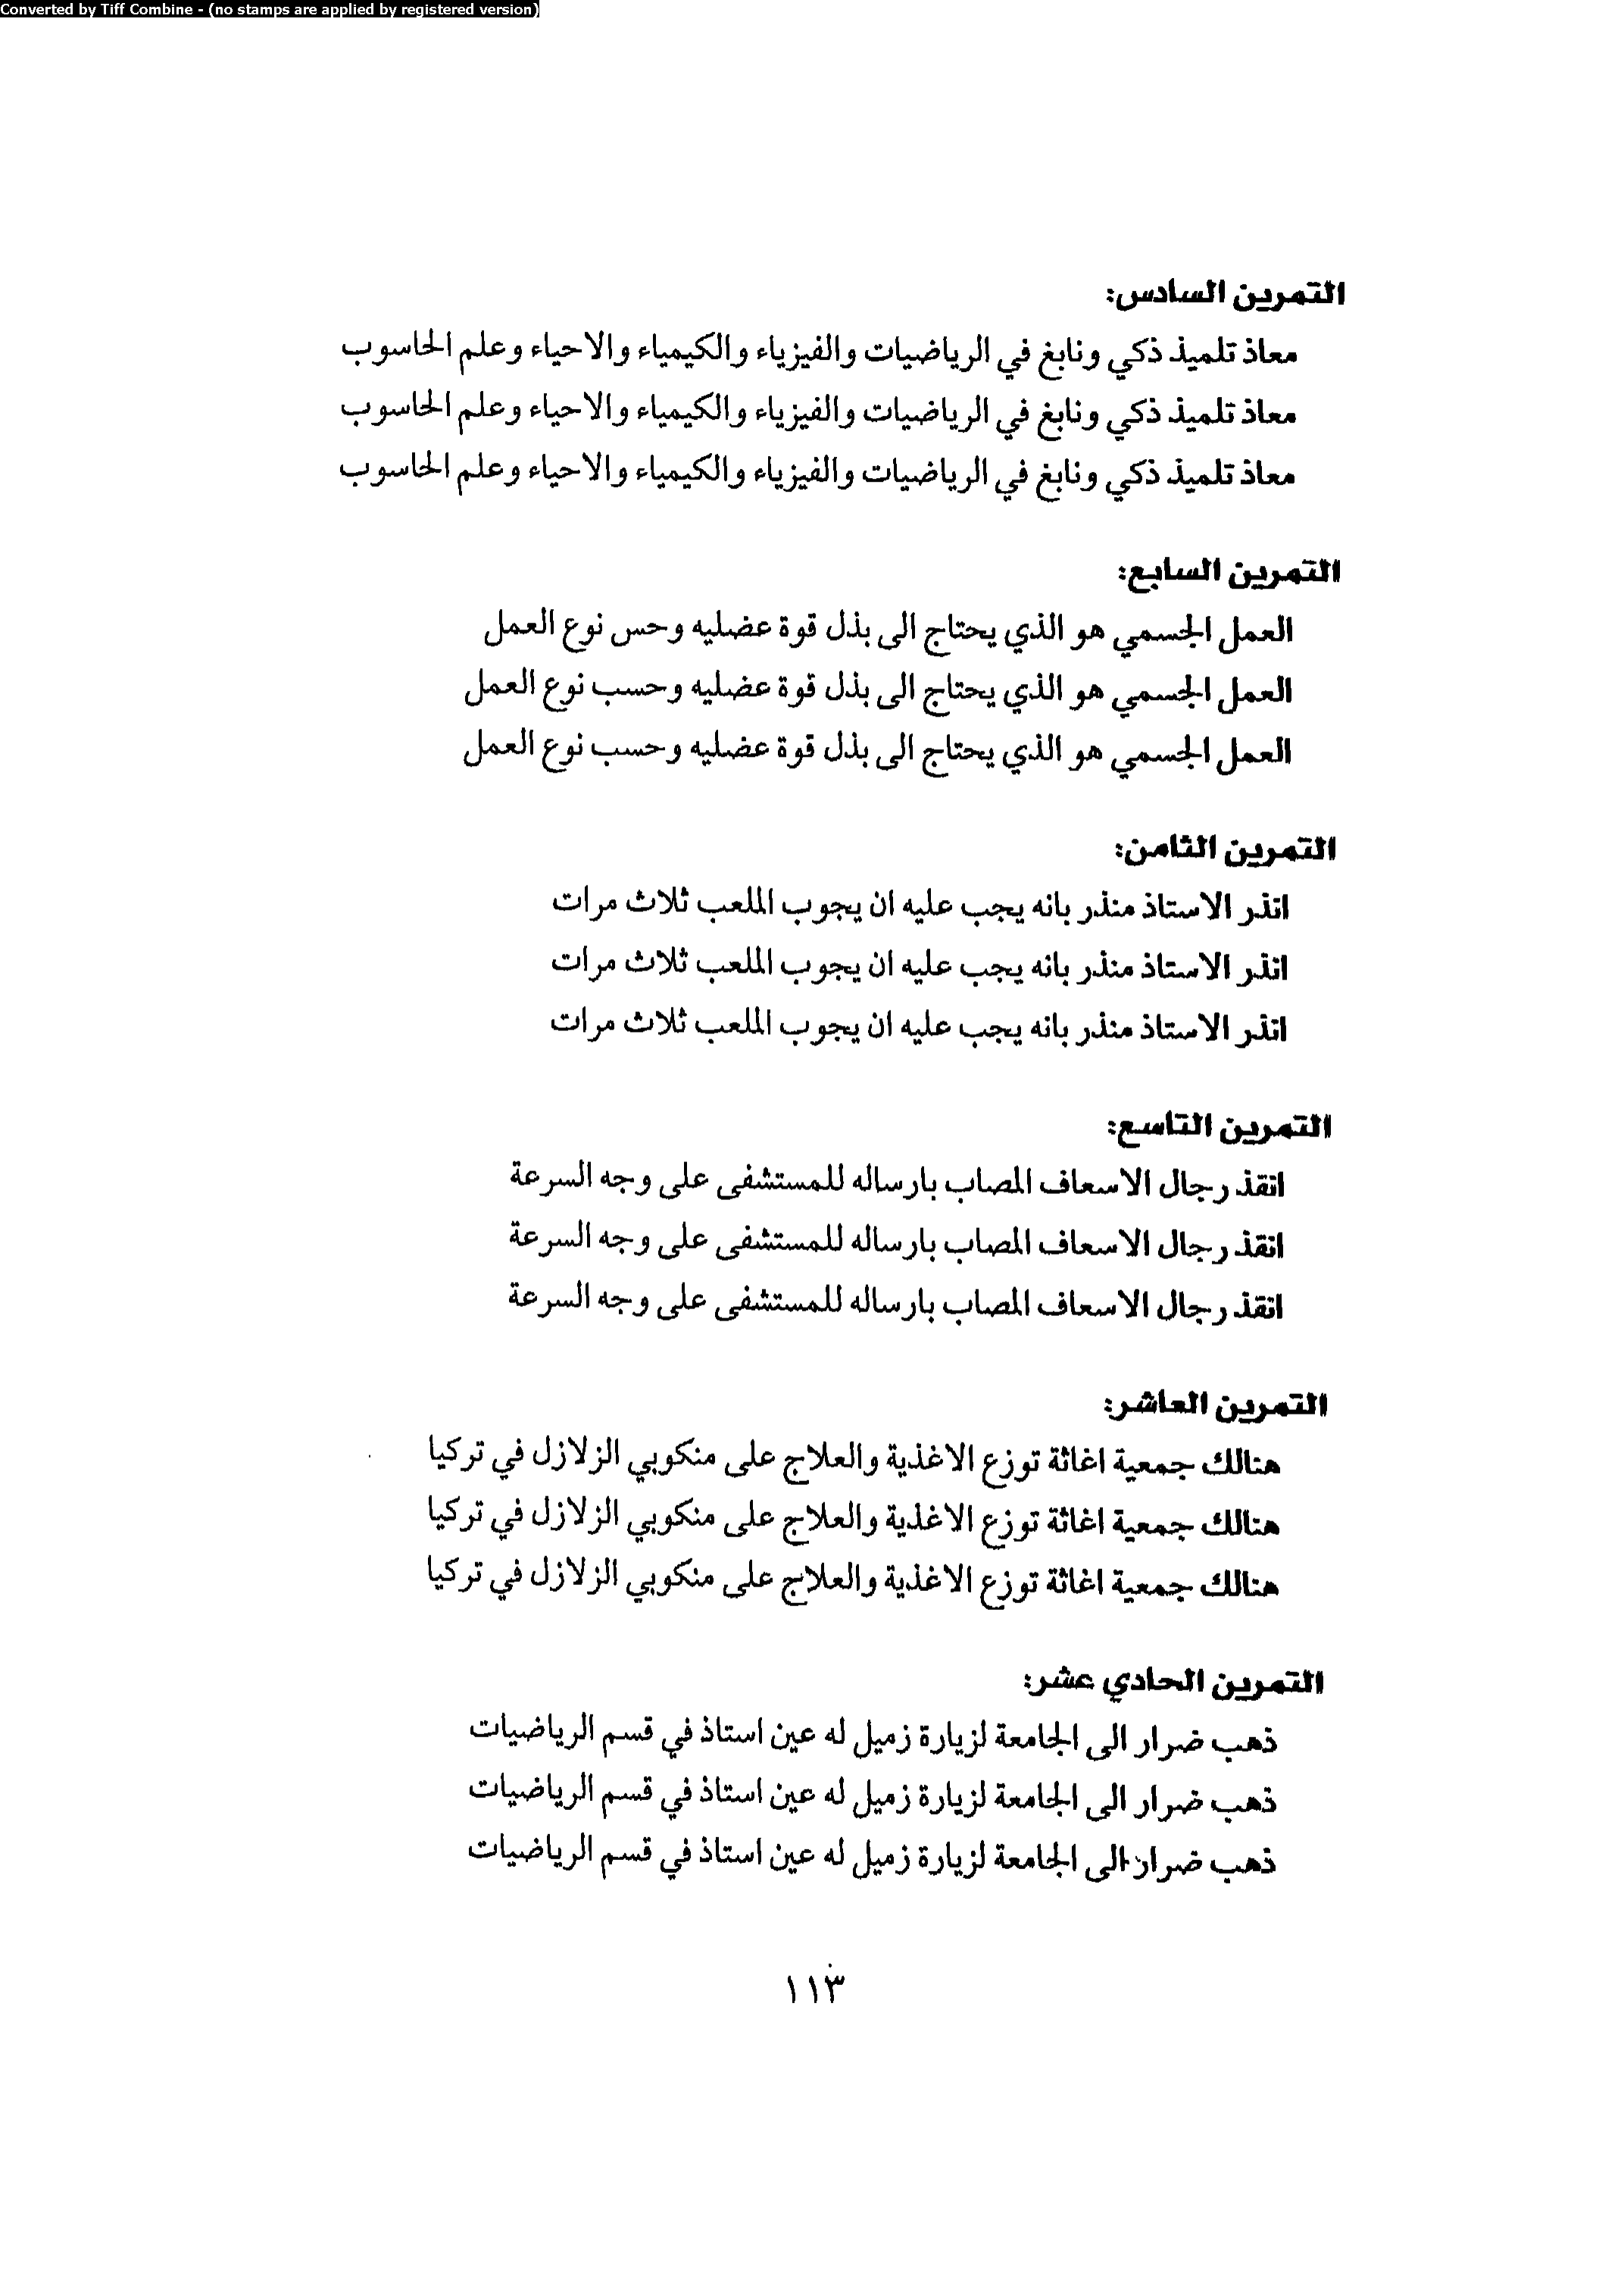 Converted by Tiff Combine - (no stamps are applied by registered version)
التمرين السادس:
معاذ تلميذ ذكي ونابغ في الرياضيات والفيزياء والكيمياء والاحياء وعلم الحاسوب
معاذ تلميذ ذكي ونابغ في الرياضيات والفيزياء والكيمياء والاحياء وعلم الحاسوب
معاذ تلميذ ذكي ونابغ في الرياضيات والفيزياء والكيمياء والاحياء وعلم الحاسوب
التمرين السابع:
العمل الجسمي هو الذي يحتاج الى بذل قوة عضليه وحس نوع العمل
العمل الجسمي هو الذي يحتاج الى بذل قوة عضليه وحسب نوع العمل
العمل الجسمي هو الذي يحتاج الى بذل قوة عضليه وحسب نوع العمل
التمرين الثامن:
انذر الاستاذ منذر بانه يجب عليه ان يجوب الملعب ثلاث مرات
انذر الاستاذ منذر بانه يجب عليه ان يجوب الملعب ثلاث مرات
انذر الاستاذ منذر بانه يجب عليه ان يجوب الملعب ثلاث مرات
التمرين التاسع:
انقذ رجال الاسعاف المصاب بارساله للمستشفى على وجه السرعة
انقذ رجال الاسعاف المصاب بارساله للمستشفى على وجه السرعة
انقذ رجال الاسعاف المصاب بارساله للمستشفى على وجه السرعة
التمرين العاشر:
هنالك جمعية اغاثة توزع الاغذية والعلاج على منكوبي الزلازل في تركيا
هنالك جمعية اغاثة توزع الاغذية والعلاج على منكوبي الزلازل في تركيا
هنالك جمعية اغاثة توزع الاغذية والعلاج على منكوبي الزلازل في تركيا
التمرين الحادي عشر:
ذهب ضرار الى الجامعة لزيارة زميل له عين استاذ في قسم الرياضيات
ذهب ضرار الى الجامعة لزيارة زميل له عين استاذ في قسم الرياضيات
ذهب ضرار الى الجامعة لزيارة زميل له عين استاذ في قسم الرياضيات
١١٣